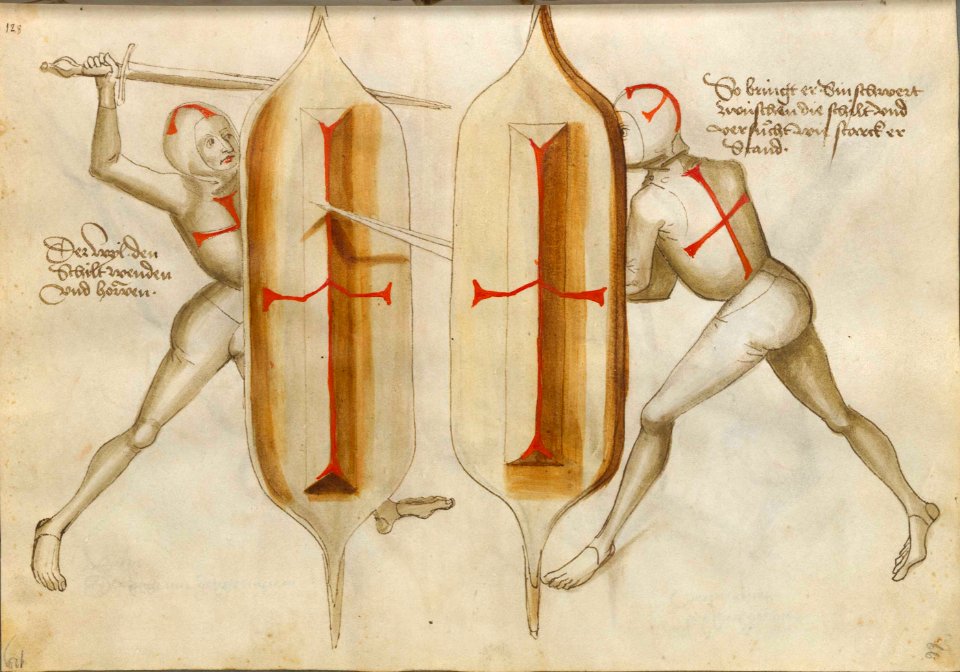 128
Der wyl den
Schilt wenden
und howen.
So bringt er Sin schwert
zwüschen die schilt und
versucht wie starck er
Stand.